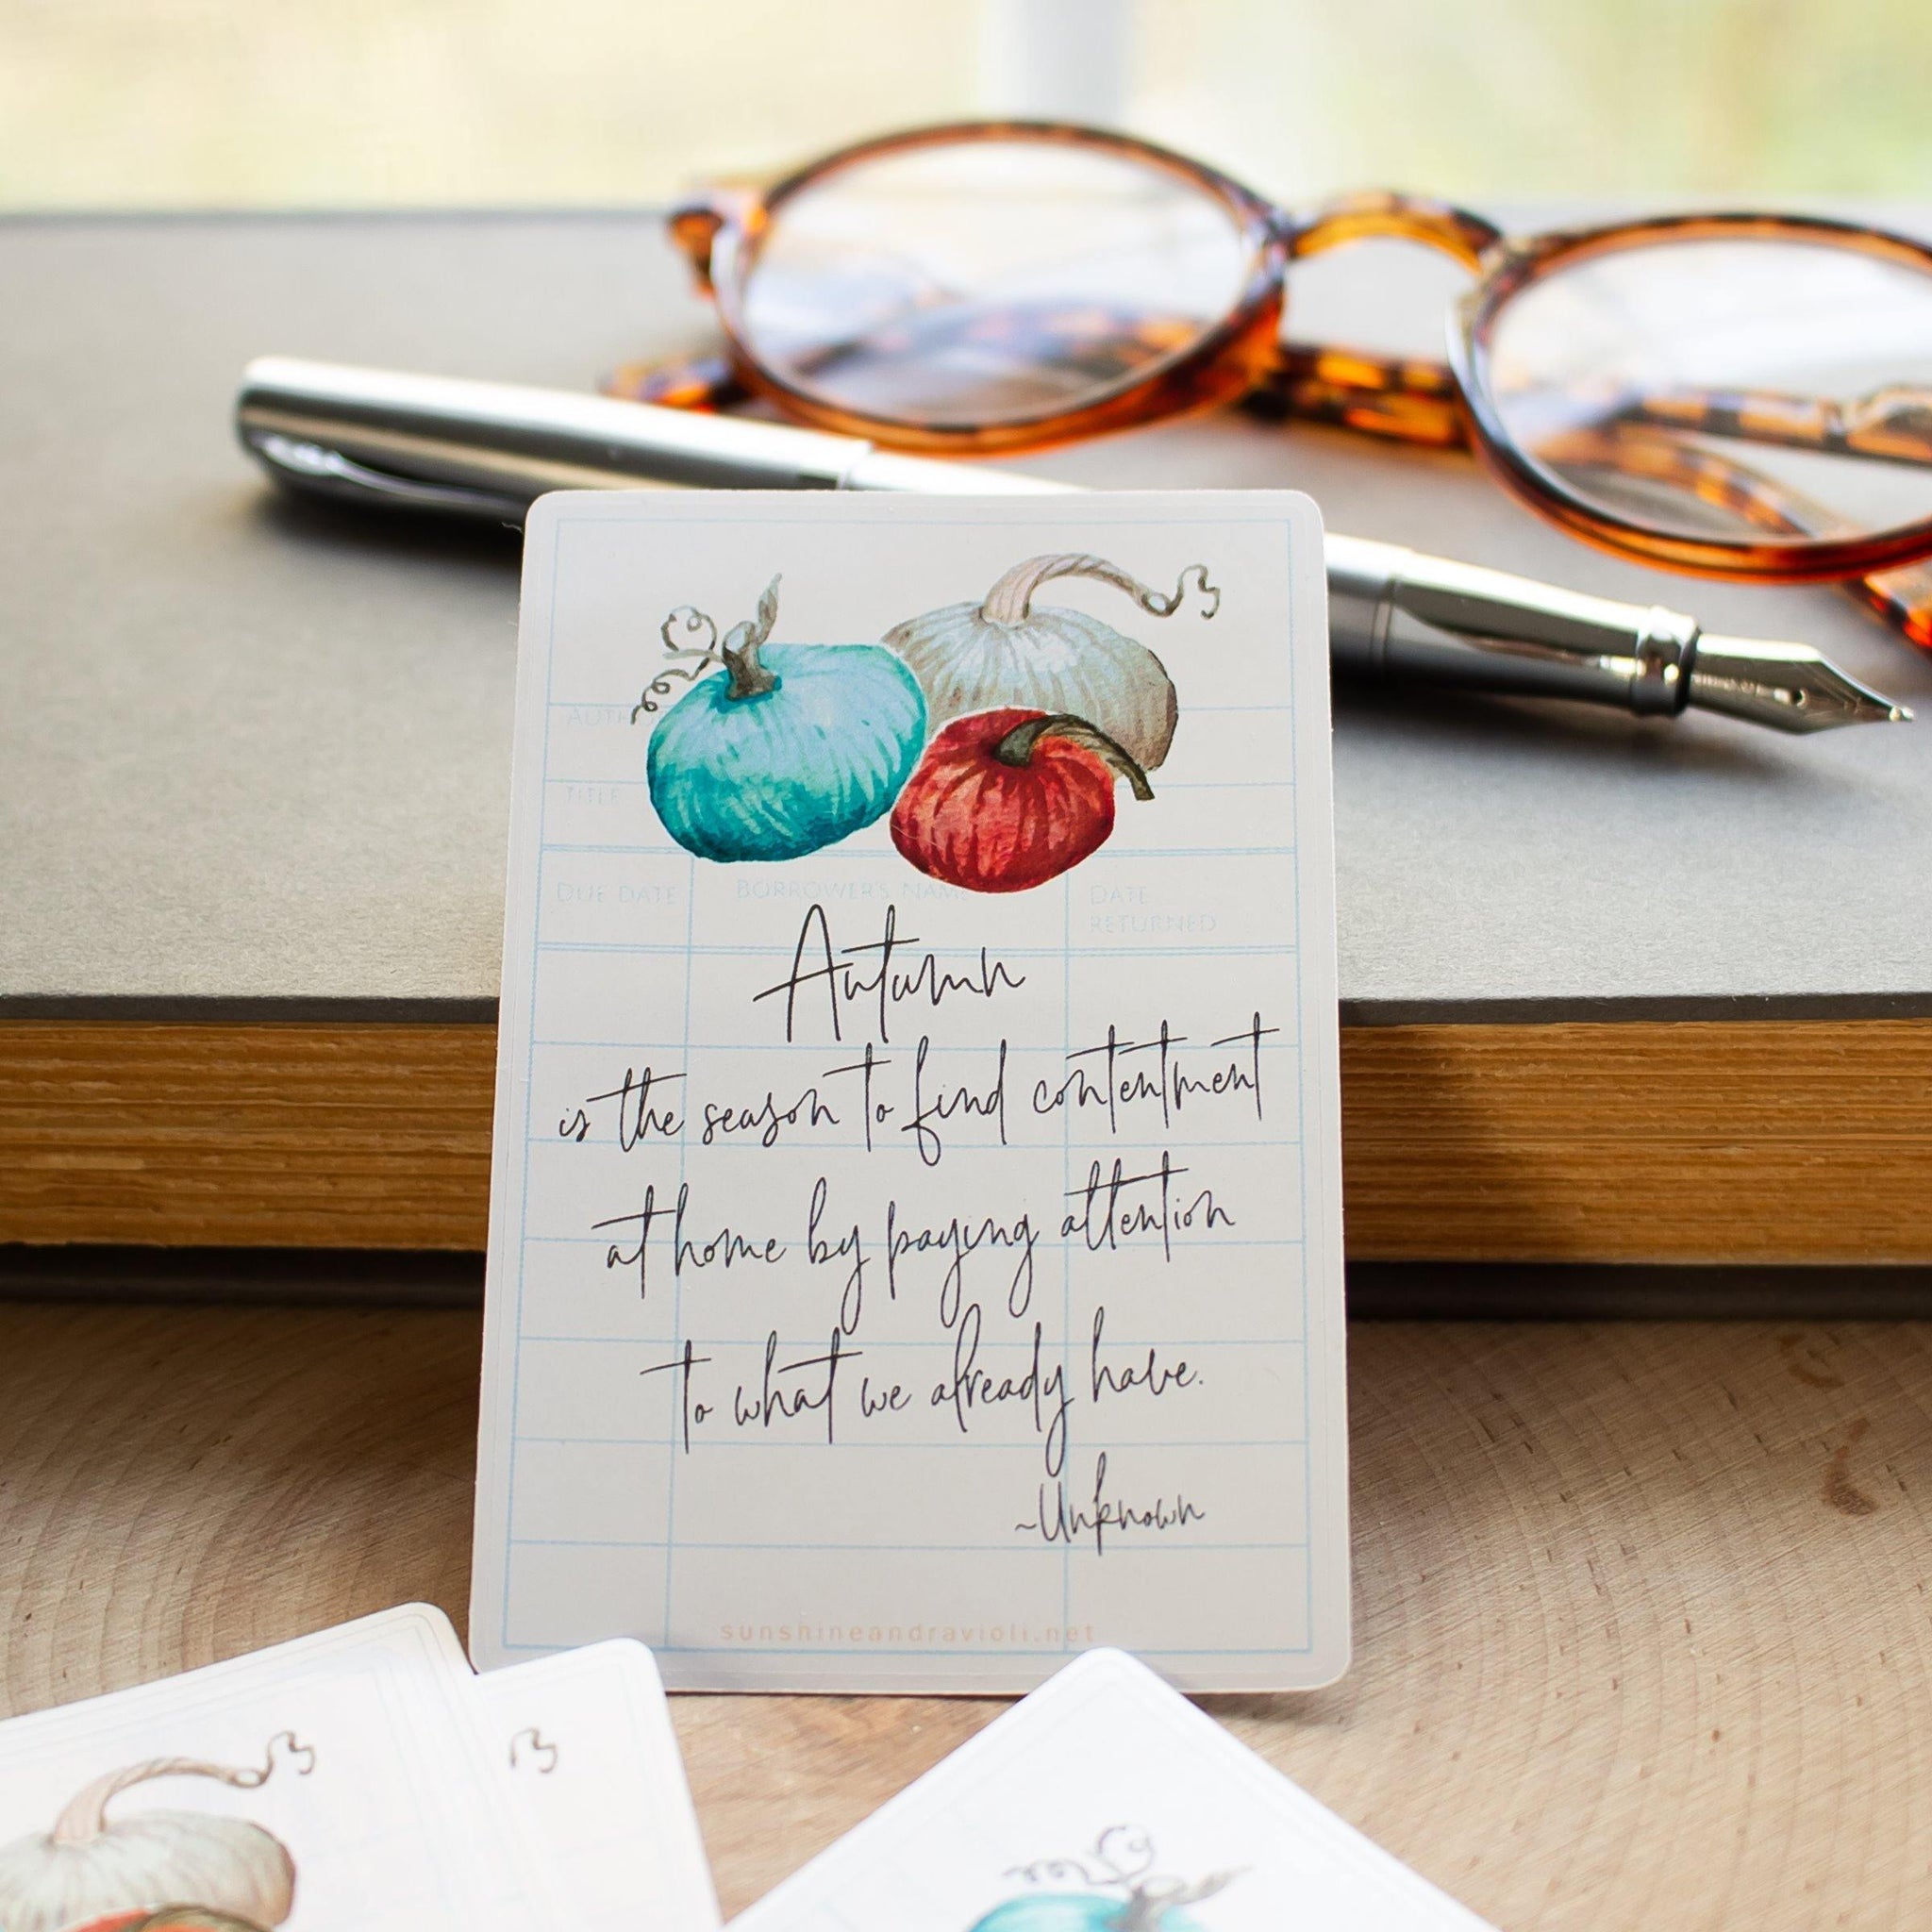 AUTHO
TITLE
DUE DATE BORROWER'S NAME DATE
RETURNED
Autumn
is the season to find contentment
at home by paying attention
to what we already have.
~Unknown
sunshineandravioli.net